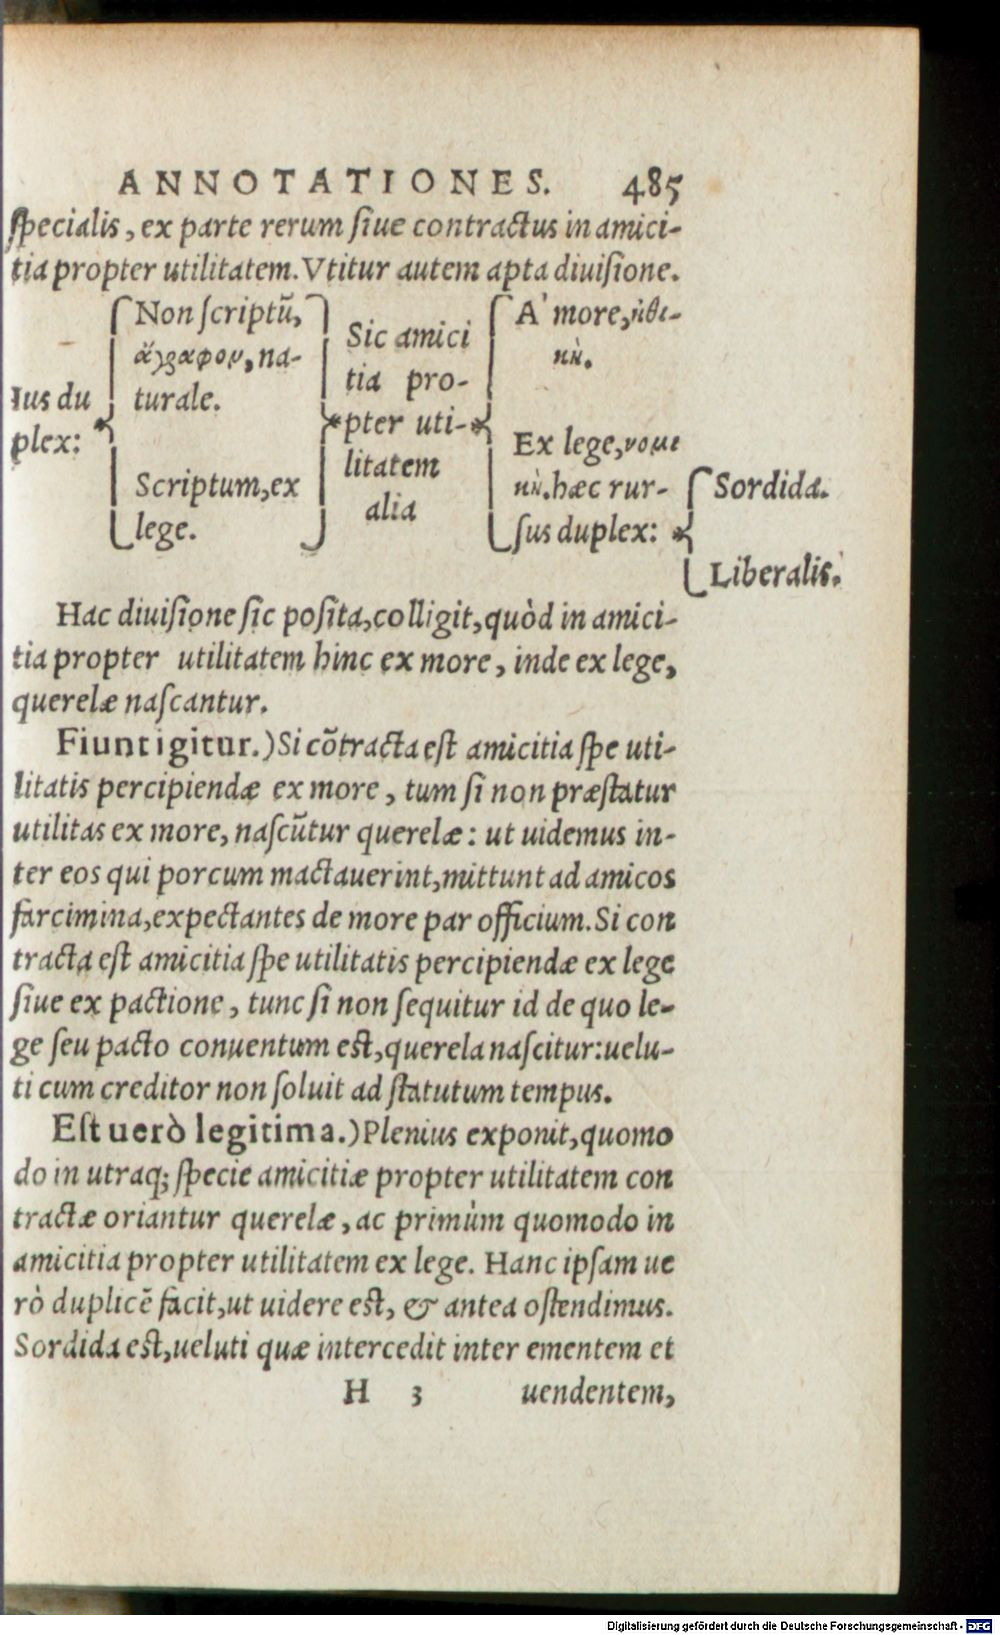 ANNOTATIONES. 485
ſpecialis, ex parte rerum ſiue contractus in amici-
tia propter utilitatem. Vtitur autem apta diuiſione.
Ius du
plex:
Non ſcriptũ,
ἄγραφον, na-
turale.
Scriptum, ex
lege.
Sic amici
tia pro-
pter uti-
litatem
alia
A' more, ἠθι-
κὴ.
Ex lege, νομι
κὴ. hæc rur-
ſus duplex:
Sordida.
Liberalis.
Hac diuiſione ſic poſita, colligit, quòd in amici-
tia propter utilitatem hinc ex more, inde ex lege,
querelæ naſcantur.
Fiunt igitur.) Si cõtracta eſt amicitia ſpe uti-
litatis percipiendæ ex more, tum ſi non præſtatur
utilitas ex more, naſcũtur querelæ: ut uidemus in-
ter eos qui porcum mactauerint, mittunt ad amicos
farcimina, expectantes de more par officium. Si con
tracta eſt amicitia ſpe utilitatis percipiendæ ex lege
ſiue ex pactione, tunc ſi non ſequitur id de quo le-
ge ſeu pacto conuentum eſt, querela naſcitur: uelu-
ti cum creditor non ſoluit ad ſtatutum tempus.
Eſt uerò legitima.) Plenius exponit, quomo
do in utraq; ſpecie amicitiæ propter utilitatem con
tractæ oriantur querelæ, ac primùm quomodo in
amicitia propter utilitatem ex lege. Hanc ipſam ue
rò duplicẽ facit, ut uidere eſt, & antea oſtendimus.
Sordida eſt, ueluti quæ intercedit inter ementem et
H 3 uendentem,
Digitalisierung gefördert durch die Deutsche Forschungsgemeinschaft - DFG